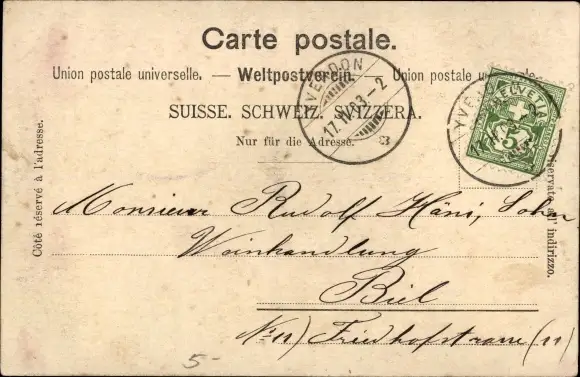 Carte postale.
Union postale universelle. — Weltpostverein. — Union postale universelle.
SUISSE. SCHWEIZ. SVIZZERA.
Nur für die Adresse.
Côté réservé à l'adresse.
YVERDON
17.IV.03-2
HELVETIA
5
YVERDON
Monsieur Rudolf Häni, Sohn
Weinhandlung
Biel
No 11) Friedhofstrasse (11)
riservato all'indirizzo.
5-